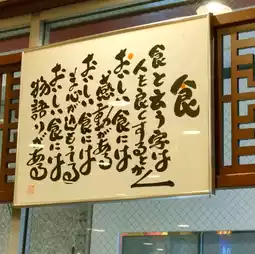 食
食と云う字は
人を良くするとかく
おいしい食には
感動がある
おいしい食には
ま心が込もってる
おいしい食には
物語りがある